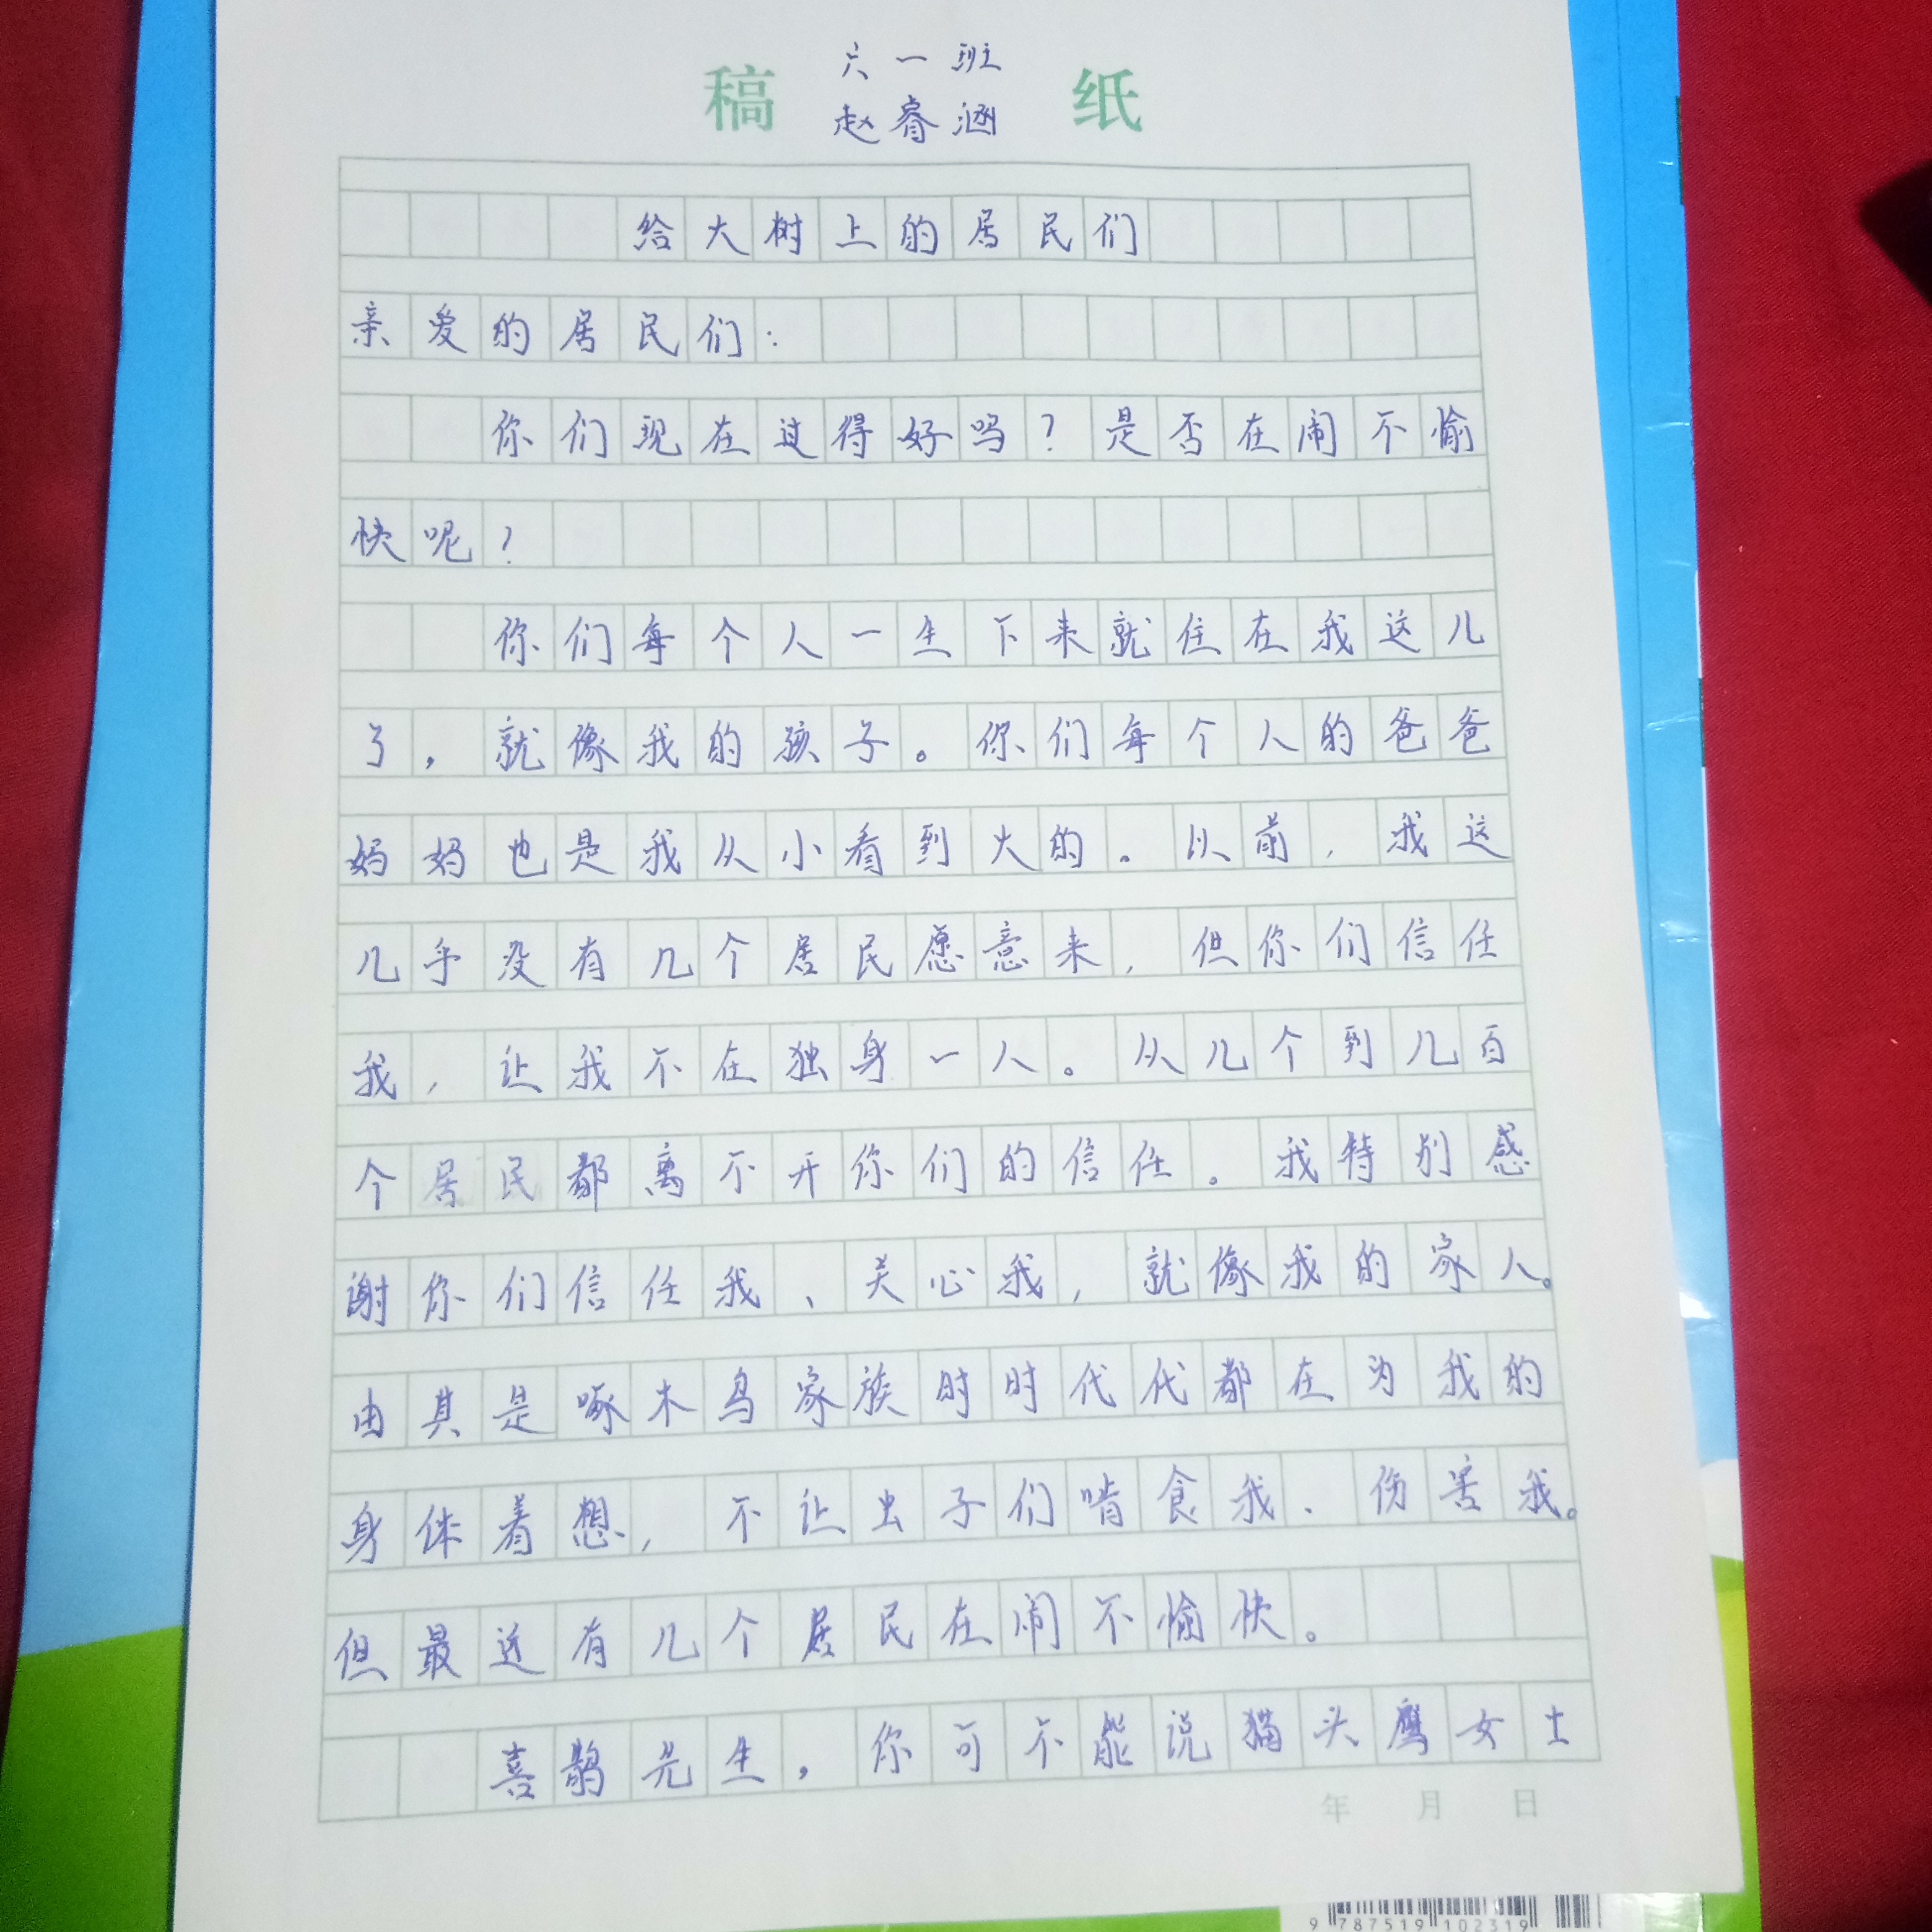 六一班
稿 纸
赵睿涵
给大树上的居民们
亲爱的居民们：
你们现在过得好吗？是否在闹不愉
快呢？
你们每个人一生下来就住在我这儿
了，就像我的孩子。你们每个人的爸爸
妈妈也是我从小看到大的。以前，我这
几乎没有几个居民愿意来，但你们信任
我，让我不在独身一人。从几个到几百
个居民都离不开你们的信任。我特别感
谢你们信任我、关心我，就像我的家人。
由其是啄木鸟家族时时代代都在为我的
身体着想，不让虫子们啃食我、伤害我。
但最近有几个居民在闹不愉快。
喜鹊先生，你可不能说猫头鹰女士
年 月 日
9 787519 102319